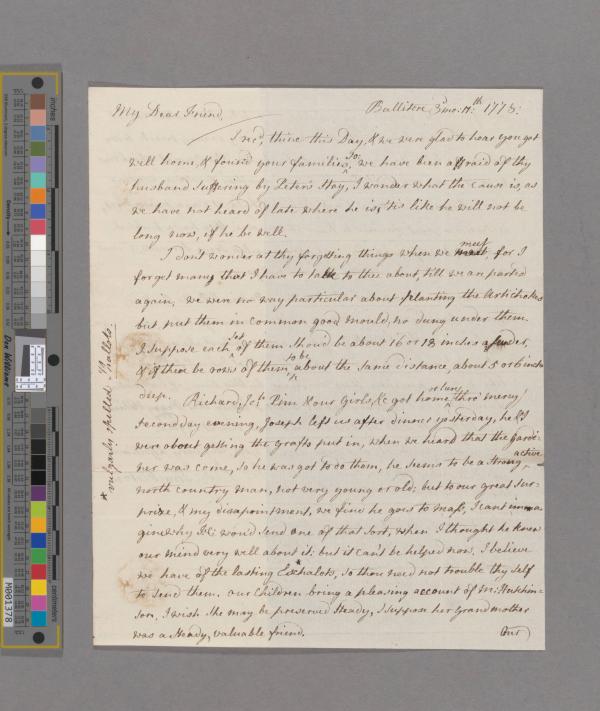 My Dear Friend, Ballitore 3d mo: 11th: 1778:
I recd, thine this Day, & we were glad to hear you got
well home, & found your families so, we have been affraid of thy
husband suffering by Peter's stay, I wonder what the cause is, as
we have not heard of late where he is: 'tis like he will not be
long now, if he be well.
I don't wonder at thy forgetting things when we meet, for I
forget many that I have to talk to thee about, till we are parted
again, we were no way particular about planting the Artichokes
but put them in common good mould, no dung under them.
I suppose each set of them should be about 16 or 18 inches asunder,
& if there be rows of them, to be about the same distance, about 5 or 6 inches
deep.
Richard, Jos: Pim & our Girls, &c got home thro' mercy
secondday evening, Joseph left us after dinner yesterday, he & I
were about getting the grafts put in, when we heard that the gardi=
ner was come, so he was got to do them, he seems to be a strong, active
north country man, not very young or old; but to our great sur=
prize, & my disapointment, we find he goes to mass, I cant imma=
gine why would send one of that sort, when I thought he knew
our mind very well about it: but it can't be helped now. I believe
we have of the lasting Eschalots*, so thou need not trouble thy self
to send them. our children bring a pleasing account of M: Hutchin=
son, I wish she may be preserved steady, I suppose her Grandmother
was a steady, valuable friend. Our
* vulgarly spelled Shallots.
inches
centimeters
Don Williams
M001378